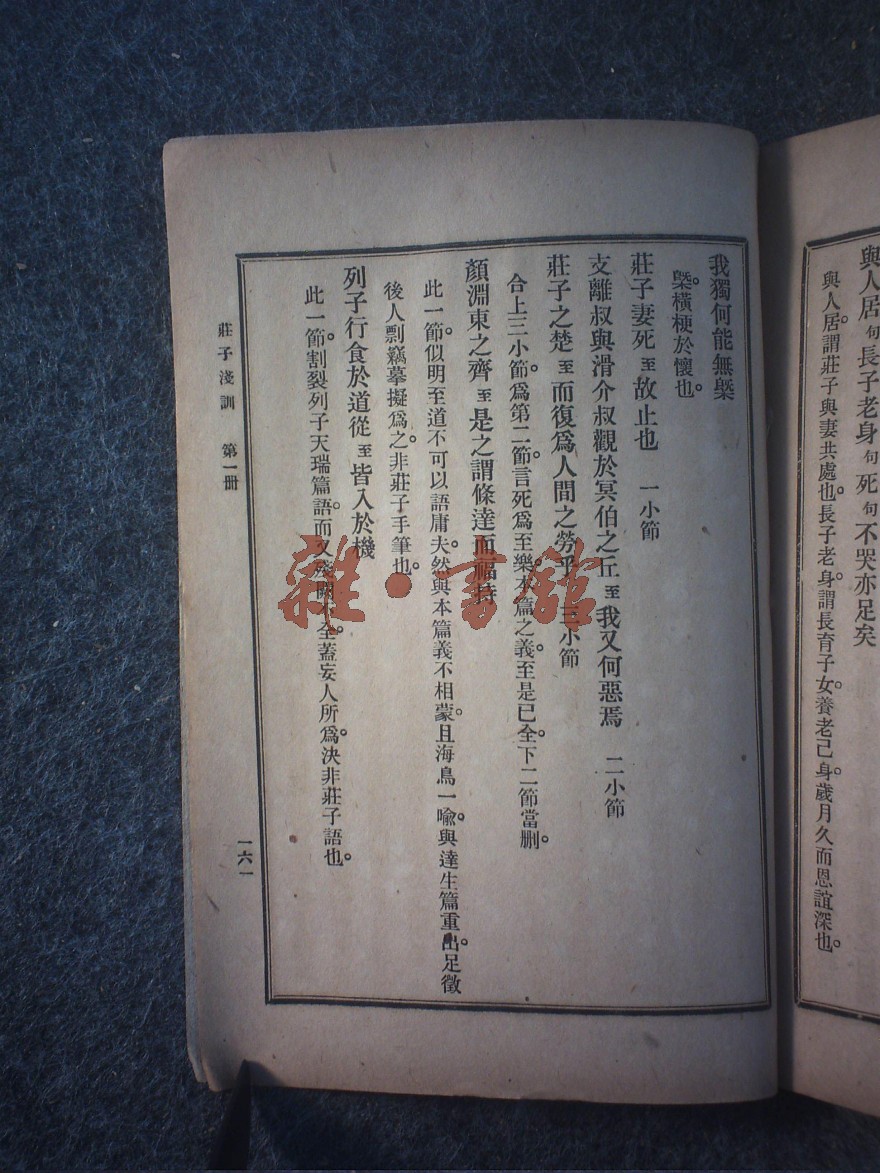 與人居句長子老身句死句不哭亦足矣
與人居。謂莊子與妻共處也。長子老身。謂長育子女。養老己身。歲月久而恩誼深也。
我獨何能無槩
槩。橫梗於懷也。
莊子妻死至故止也　一小節
支離叔與滑介叔觀於冥伯之丘至我又何惡焉　二小節
莊子之楚至而復爲人間之勞乎　三小節
合上三小節。爲第二節。言死爲至樂。本篇之義。至是已全。下二節當刪。
顏淵東之齊至是之謂條達而福持
此一節。似明至道不可以語庸夫。然與本篇義不相蒙。且海鳥一喩。與達生篇重出。足徵
後人剽竊摹擬爲之。非莊子手筆也。
列子行食於道從至皆入於機
此一節。割裂列子天瑞篇語。而又殘闕不全。蓋妄人所爲。決非莊子語也。
莊子淺訓　第一册
一六一
雜·書館